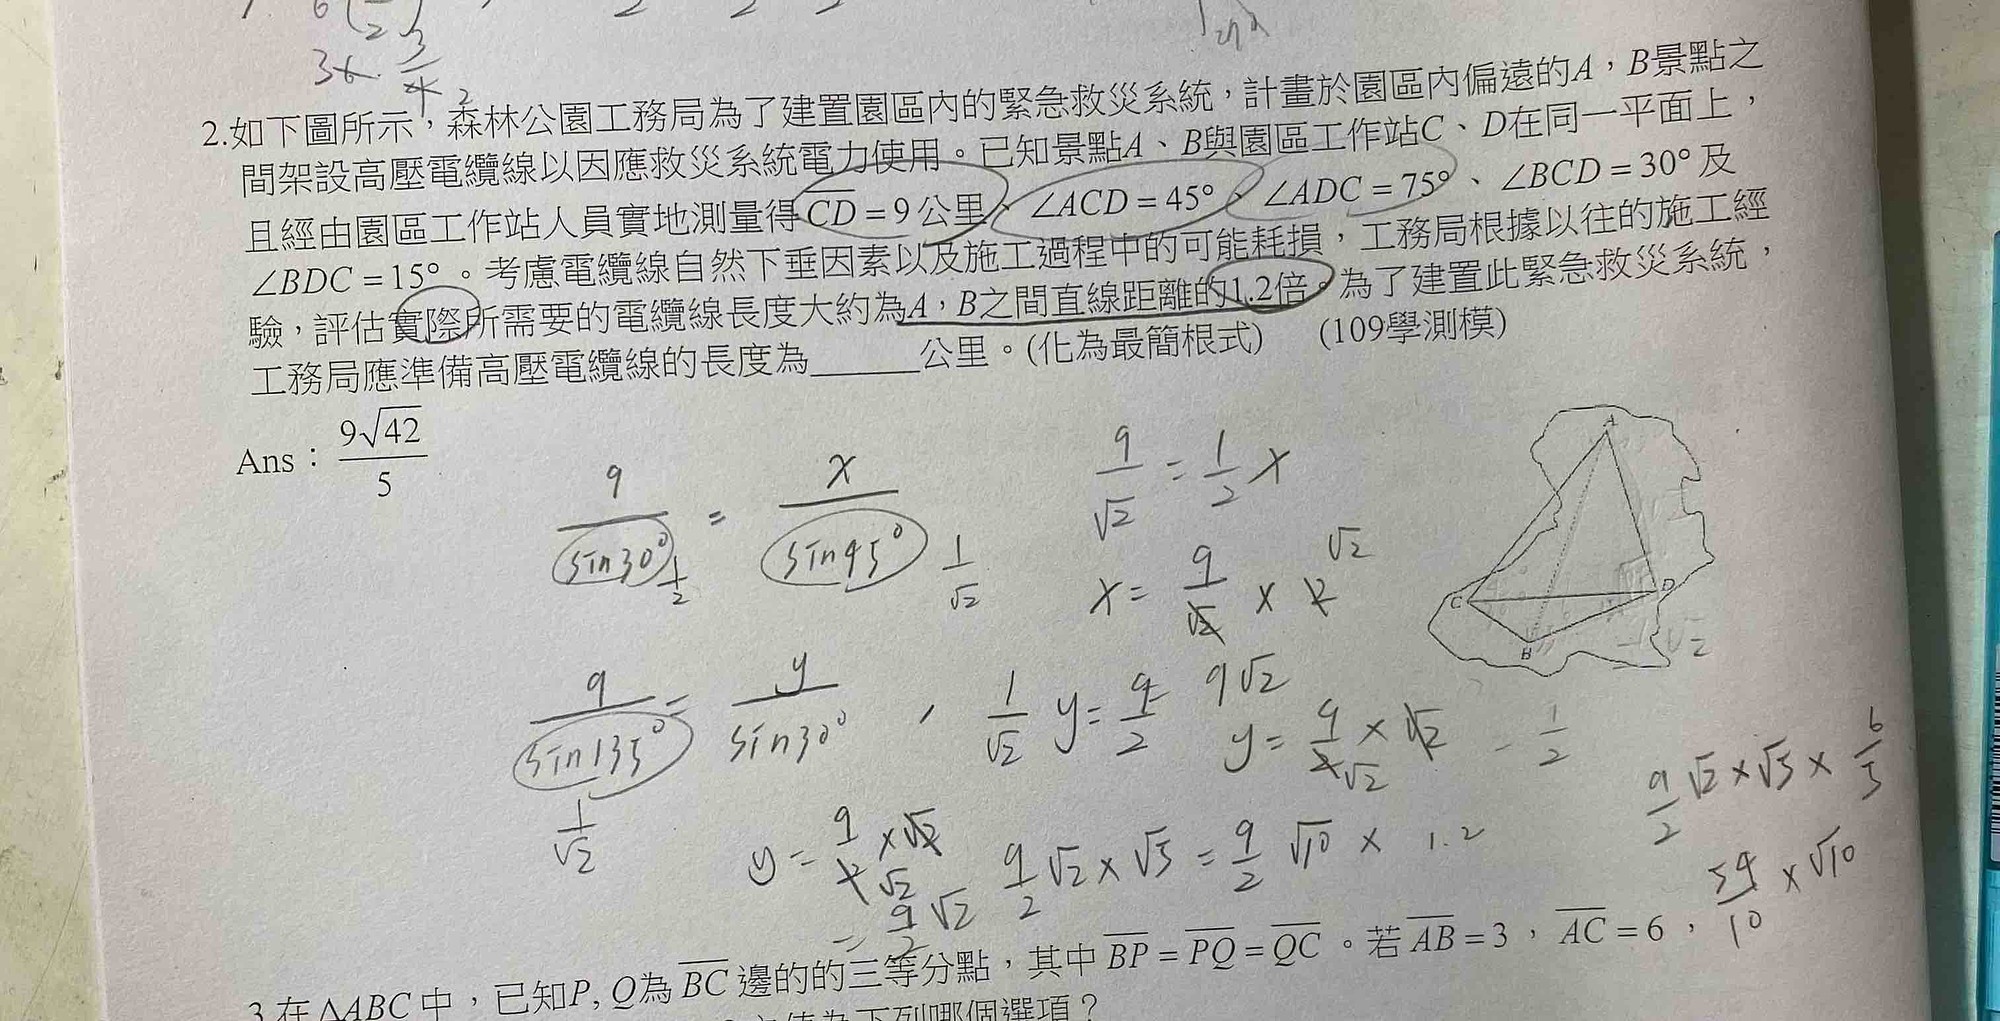 3x · 3/4 2
2.如下圖所示，森林公園工務局為了建置園區內的緊急救災系統，計畫於園區內偏遠的A，B景點之
間架設高壓電纜線以因應救災系統電力使用。已知景點A、B與園區工作站C、D在同一平面上，
且經由園區工作站人員實地測量得CD=9公里、∠ACD=45°、∠ADC=75°、∠BCD=30°及
∠BDC=15°。考慮電纜線自然下垂因素以及施工過程中的可能耗損，工務局根據以往的施工經
驗，評估實際所需要的電纜線長度大約為A，B之間直線距離的1.2倍。為了建置此緊急救災系統，
工務局應準備高壓電纜線的長度為______公里。(化為最簡根式) (109學測模)
Ans：9√42/5
9/sin30° = x/sin45° 1/2 1/√2
9/√2 = 1/2 x
x = 9/√2 × 2 √2
9√2
A
C
D
B
9/sin135° = y/sin30° , 1/√2 y = 9/2
1/√2
y = 9/2 × √2 - 1/2
y = 9/2 × √2
= 9/2 √2
9/2 √2 × √5 = 9/2 √10 × 1.2
9/2 √2 × √5 × 6/5
54/10 × √10
3.在△ABC中，已知P, Q為BC邊的的三等分點，其中BP=PQ=QC。若AB=3，AC=6，
下列哪個選項？